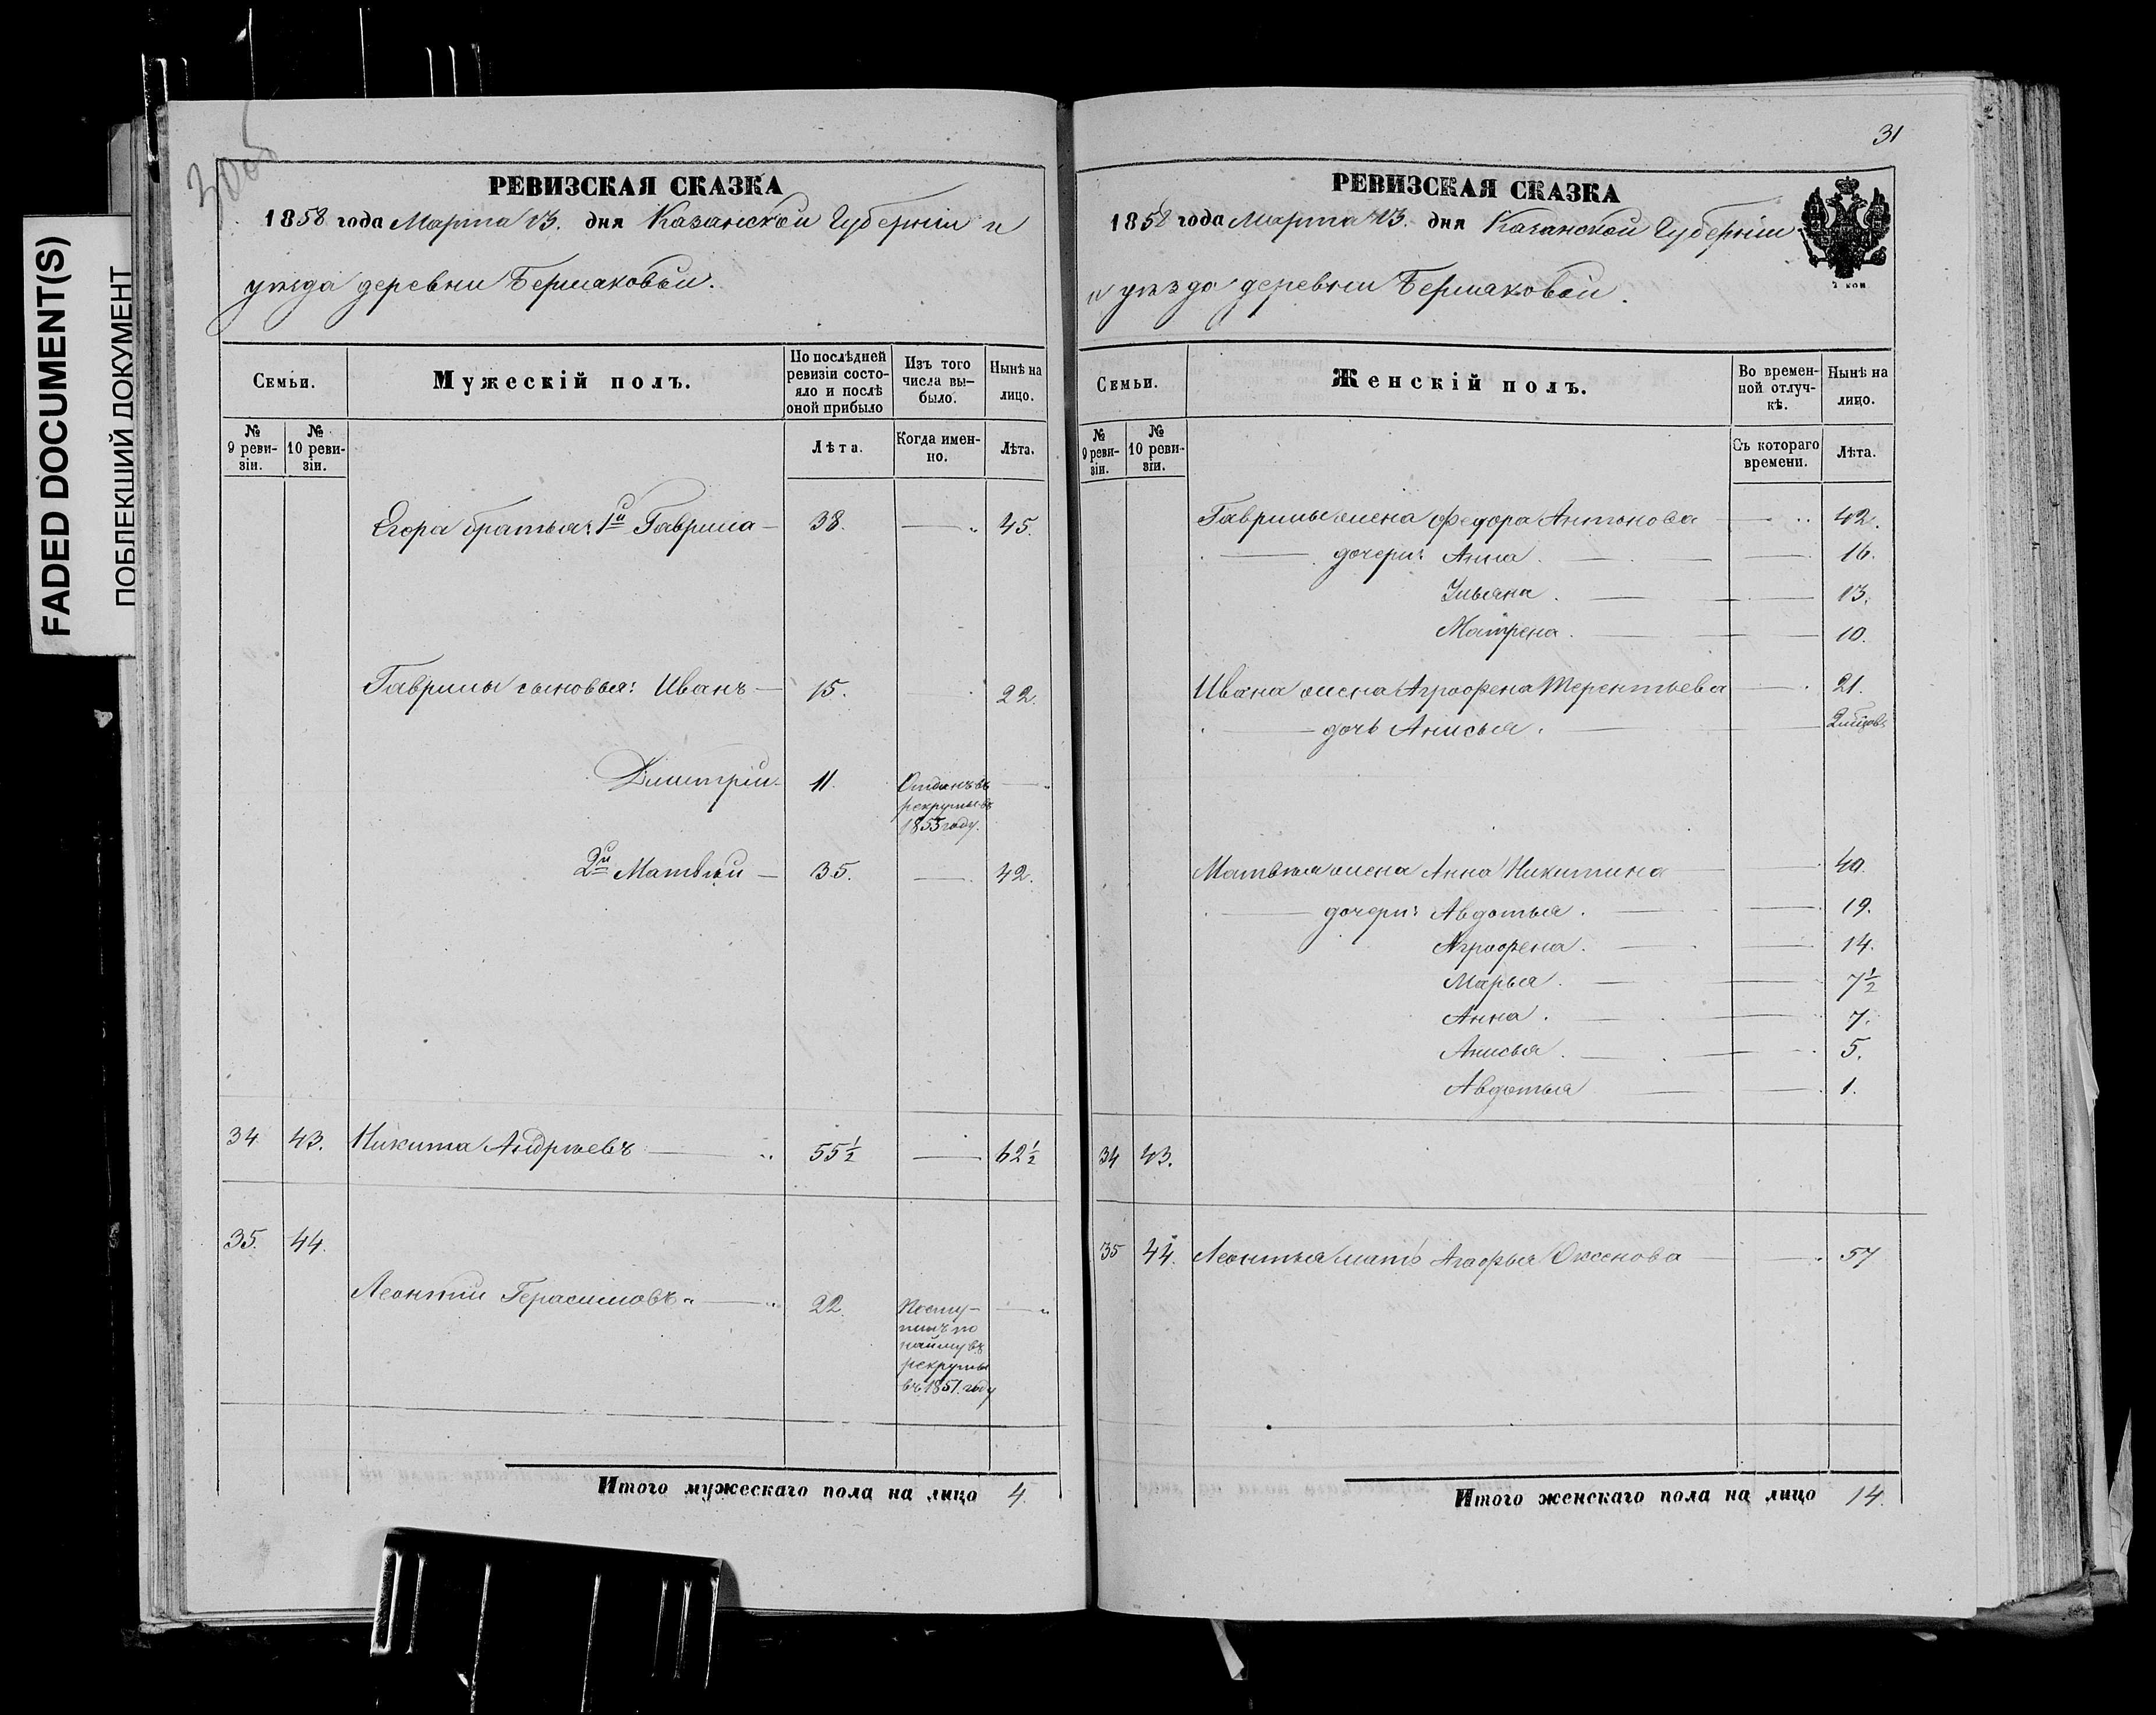 FADED DOCUMENT(S)
ПОБЛЕКШИЙ ДОКУМЕНТ
РЕВИЗСКАЯ СКАЗКА
1858 года Марта 13. дня Казанской Губерніи и
уѣзда деревни Бермаковой.
Семьи.
Мужескій полъ.
По послѣдней ревизіи состояло и послѣ оной прибыло
Изъ того числа выбыло.
Нынѣ на лицо.
№ 9 ревизіи.
№ 10 ревизіи.
Лѣта.
Когда именно.
Лѣта.
Егора братья: 1й Гаврила — 38. — 45.
Гаврилы сыновья: Иванъ — 15. — 22.
Дмитрій — 11. Отданъ въ
рекруты въ
1853 году.
2й Матвѣй — 35. — 42.
34 43. Никита Андреевъ — 55 1/2 — 62 1/2
35. 44.
Леонтій Герасимовъ — 22. Посту-
пилъ по
найму въ
рекруты
въ 1851. году
Итого мужескаго пола на лицо 4.
31
РЕВИЗСКАЯ СКАЗКА
1858 года Марта 13. дня Казанской Губерніи
и уѣзда деревни Бермаковой.
2 коп
Семьи.
Женскій полъ.
Во временной отлучкѣ.
Нынѣ на лицо.
№ 9 ревизіи.
№ 10 ревизіи.
Съ котораго времени.
Лѣта.
Гаврилы жена Федора Антонова — 42.
— дочери: Анна. — 16.
Ульяна. — 13.
Матрена. — 10.
Ивана жена Аграфена Терентьева — 21.
— дочь Анисья. —
Матвѣя жена Анна Никитина — 40.
— дочери: Авдотья. — 19.
Аграфена. — 14.
Марья. — 7 1/2
Анна. — 7.
Анисья. — 5.
Авдотья — 1.
34 43.
35 44. Леонтья мать Агафья Оксенова — 57
Итого женскаго пола на лицо 14.